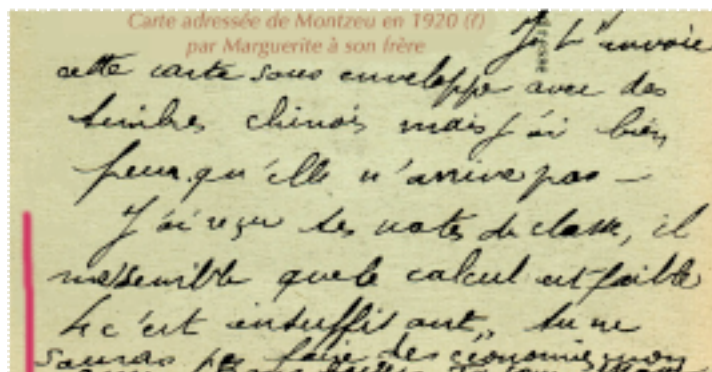 Carte adressée de Montzeu en 1920 (?)
par Marguerite à son frère
Je t'envoie
cette carte sous enveloppe avec des
timbres chinois mais j'ai bien
peur qu'elle n'arrive pas —
J'ai reçu tes notes de classe, il
me semble que le calcul est faible
4 c'est insuffisant, tu ne
sauras pas faire des économies mon